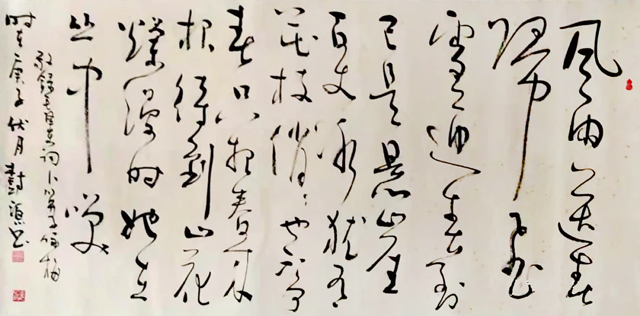 风雨送春
归飞
雪迎春到
已是悬崖
百丈冰犹有
花枝俏〻也不争
春只把春来
报待到山花
烂漫时她在
丛中笑
敬录毛主席词卜算子咏梅
时在庚子伏月